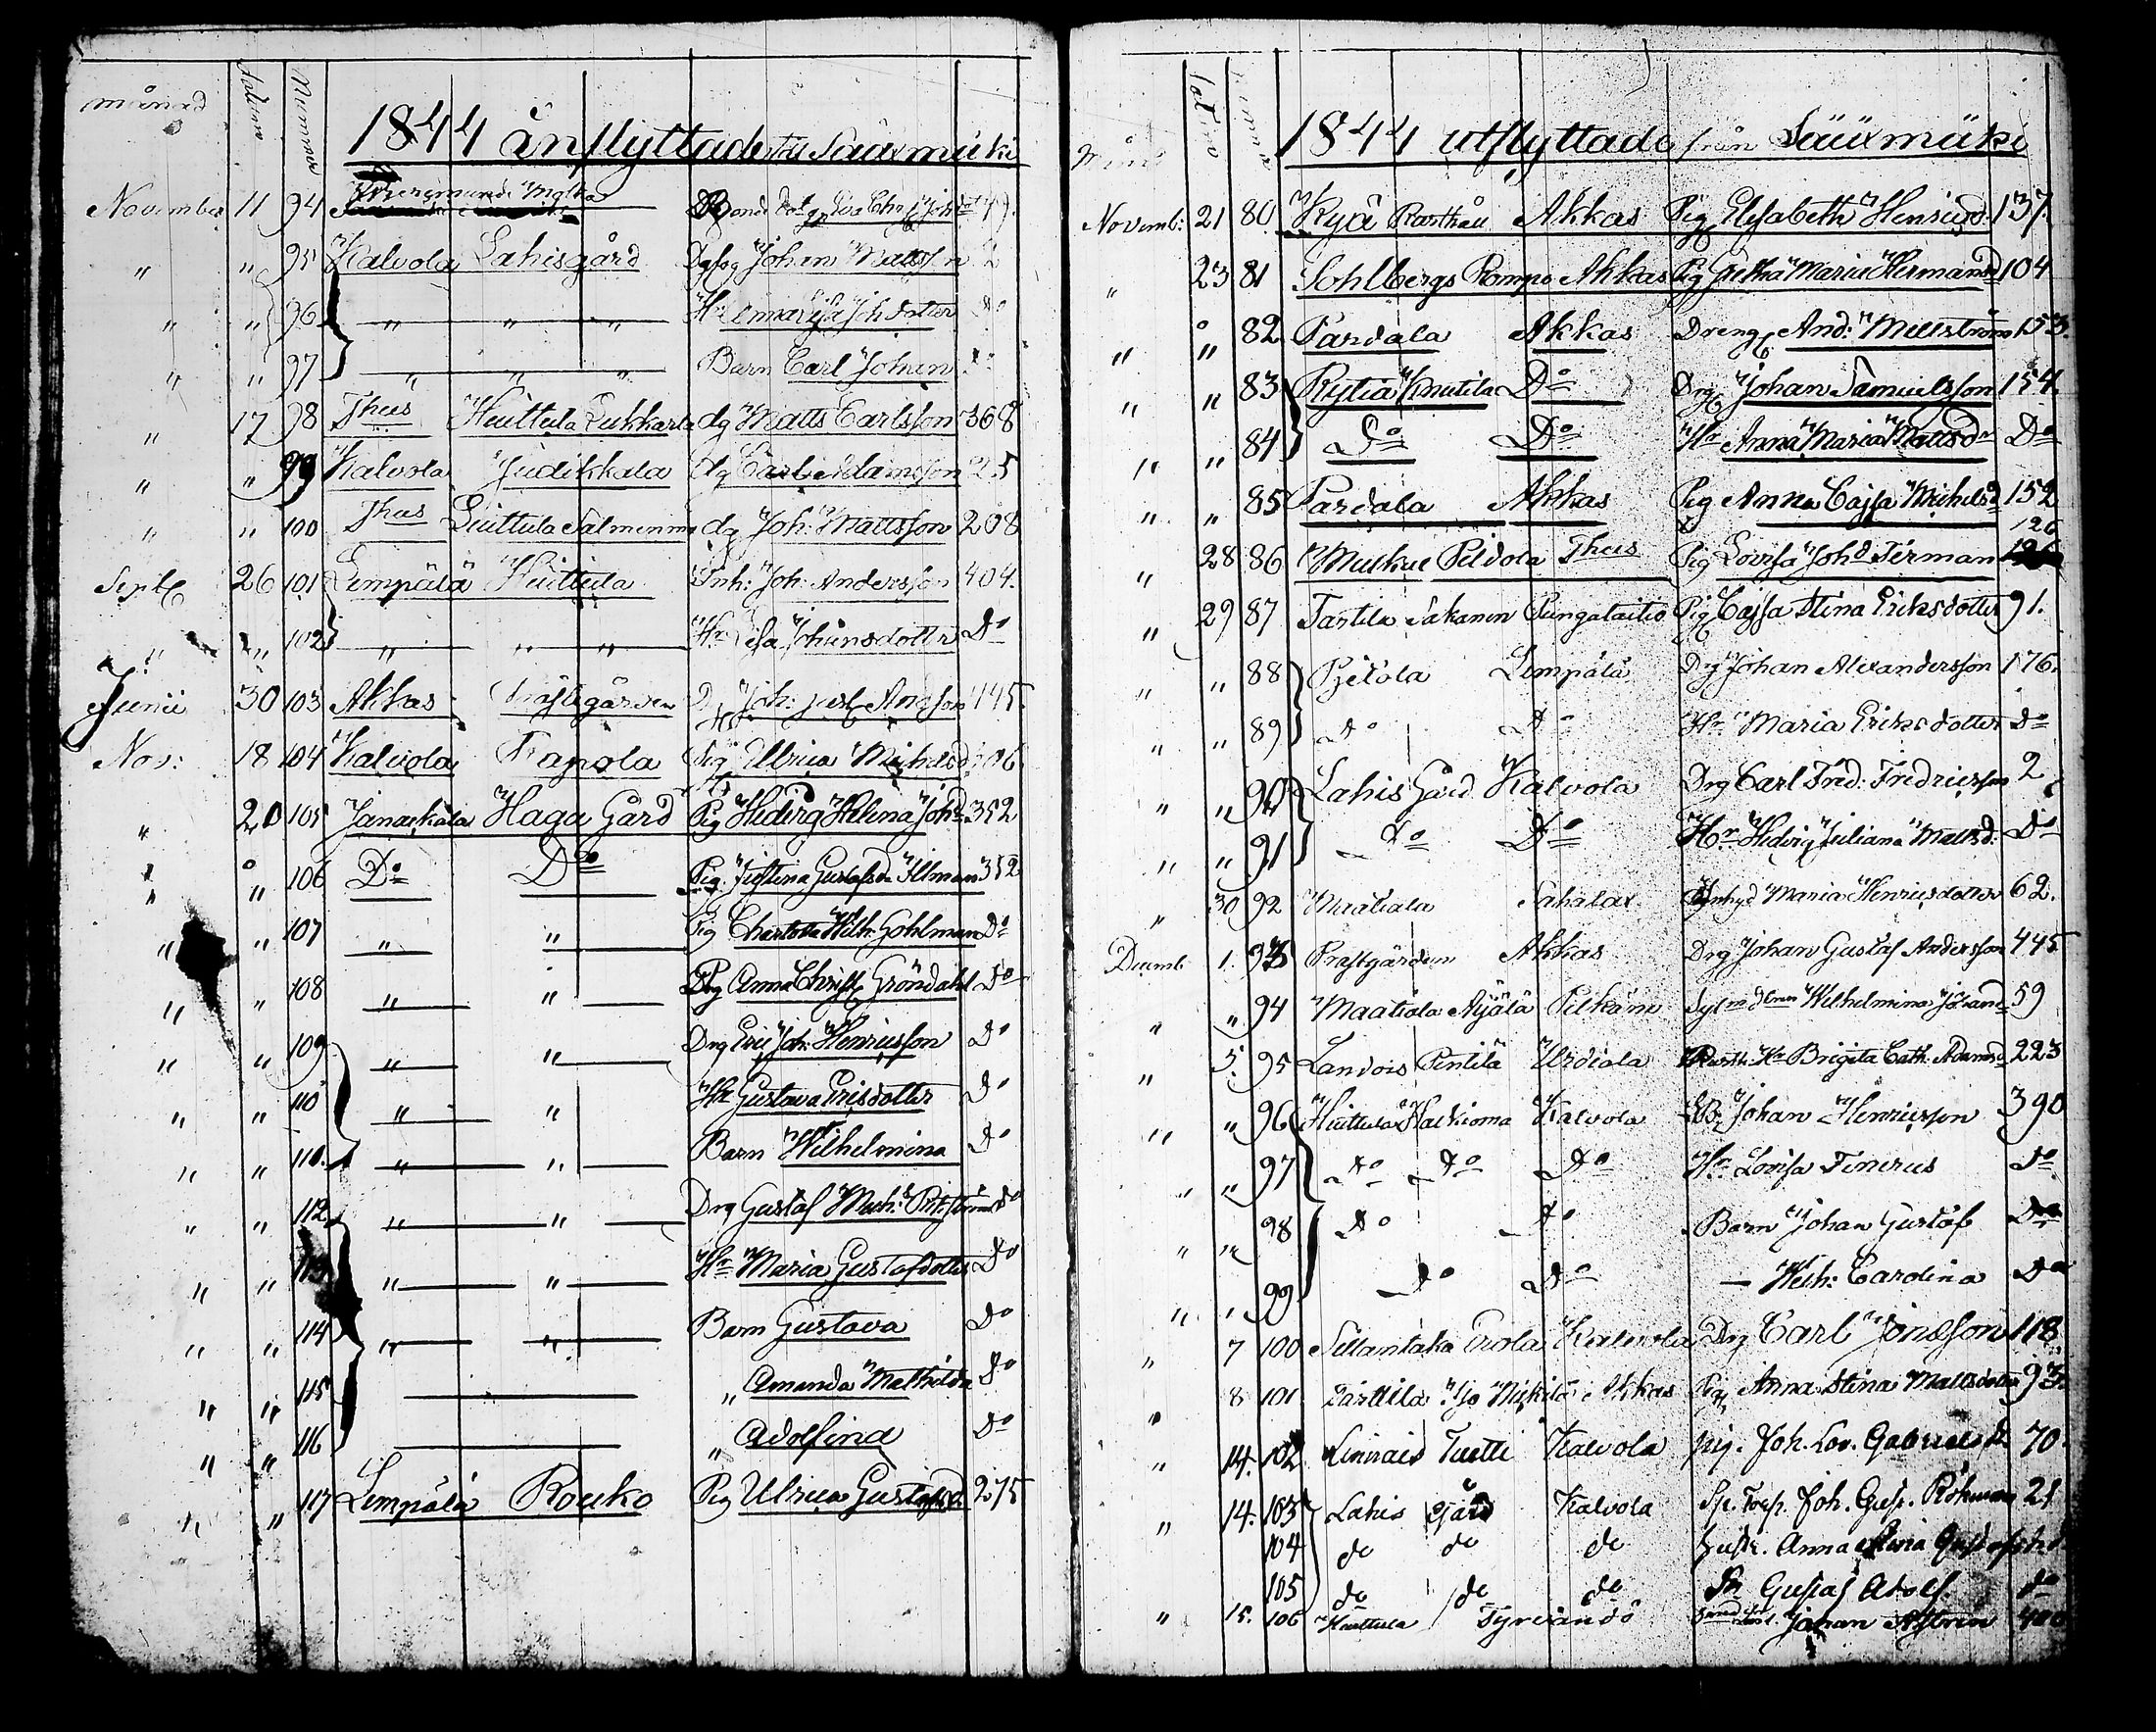 månad Datum Nummer
1844 inflyttade till Sääxmäki
November 11 94
" " 95 Kalvola Lahisgård Johan Mattsson 2
" " 96 " " " Joh dotter Do
" " 97 " " " Barn Carl Johan Do
" 17 98 Thus Huittula Lukkarla dg Matts Carlsson 368
" " 99 Kalvola Judikkala dg Carl Adamsson 25
" " 100 Thus Huittula Salmenma dg Joh: Mattsson 208
Sept 26 101 Lempälä Huittula Inh: Joh: Andersson 404.
" " 102 " " " Hu Lisa Johansdotter Do
Junii 30 103 Akkas Prästgården Joh: Andsson 445
Nov: 18 104 Kalvola Tapola Pig Ulrica Michelsd 206
" 20 105 Janackala Haga Gård Pig Hedvig Helena Joh: 352
" " 106 Do Do Pig Justina Gustafsd Illman 352
" " 107 " " Pig Charlotta Wilh: Gohlman Do
" " 108 " " Pig Anna Christ Gröndahl Do
" " 109 " " Drg Eric Joh: Henricsson Do
" " 110 " " Hu Gustava Ericsdotter Do
" " 110. " " Barn Wilhelmina Do
" " 112 " " Drg Gustaf Mich: Do
" " 113 " " Hu Maria Gustafdotter Do
" " 114 " " Barn Gustava Do
" " 115 " Amanda Mathilda Do
" " 116 " Adolfina Do
" " 117 Lempälä Rouko Pig Ulrica Gustafsd 275
Mån Datum Numer
1844 utflyttade från Sääxmäki
Novemb: 21 80 Kyä Akkas Pig Elisabeth Hensicsd: 137.
" 23 81 Sohlbergs Rompo Akkas Pig Maria Hermansd 104
" " 82 Pardala Akkas Dreng And: Mellström 153.
" " 83 Rytiä Knutila Do Drg Johan Samuelsson 154.
" " 84 Do Do Hu Anna Maria Mattsdr Do
" " 85 Pardala Akkas Pig Anna Cajsa Michelsd 152
" 28 86 Muskue Peldola Thus Pig Lovisa Johd Ferman 126
" 29 87 Tartila Sakanen Pungalaitio Pig Cajsa Stina Eriksdotter 91.
" " 88 Pjetola Lempälä Drg Johan Alexandersson 176.
" " 89 Do Do Hu Maria Eriksdotter Do
" " 90 Lahis Gård Kalvola Drg Carl Fred: Fredricsson 2
" " 91 Do Do Hr Hedvig Juliana Mattsd: Do
" 30 92 Maatiala Sahalax Inhyd Maria Henricsdotter 62.
Decemb 1. 93 Prästgården Akkas Drg Johan Gustaf Andersson 445
" " 94 Maatiala Äijälä Pelkäne Wilhelmina 59
" 5. 95 Landois Pentilä Urdiala Hu Brigita Cath: Adamsd 223
" " 96 Huittula Kalvola Johan Henricsson 390
" " 97 Do Do Do Hr Lovisa Do
" " 98 Do Do Barn Johan Gustaf Do
" " 99 Do Do — Wilh: Carolina Do
" 7 100 Sillantaka Erola Kalvola Drg Carl Jonasson 118
" 8 101 Tarttila Akkas Pig Anna Stina Mattsdotter 93.
" 14. 102 Linnais Tuetti Kalvola pig. Joh. Lov. Gabrielsdr 70.
" 14. 103 Lahis gård Kalvola Joh. Gust. Röhman 21
104 do do do hustr. Anna Maria
105 do do do Sn Gustaf Adolf do
" 15. 106 Huittula Tyrvändö Johan 400